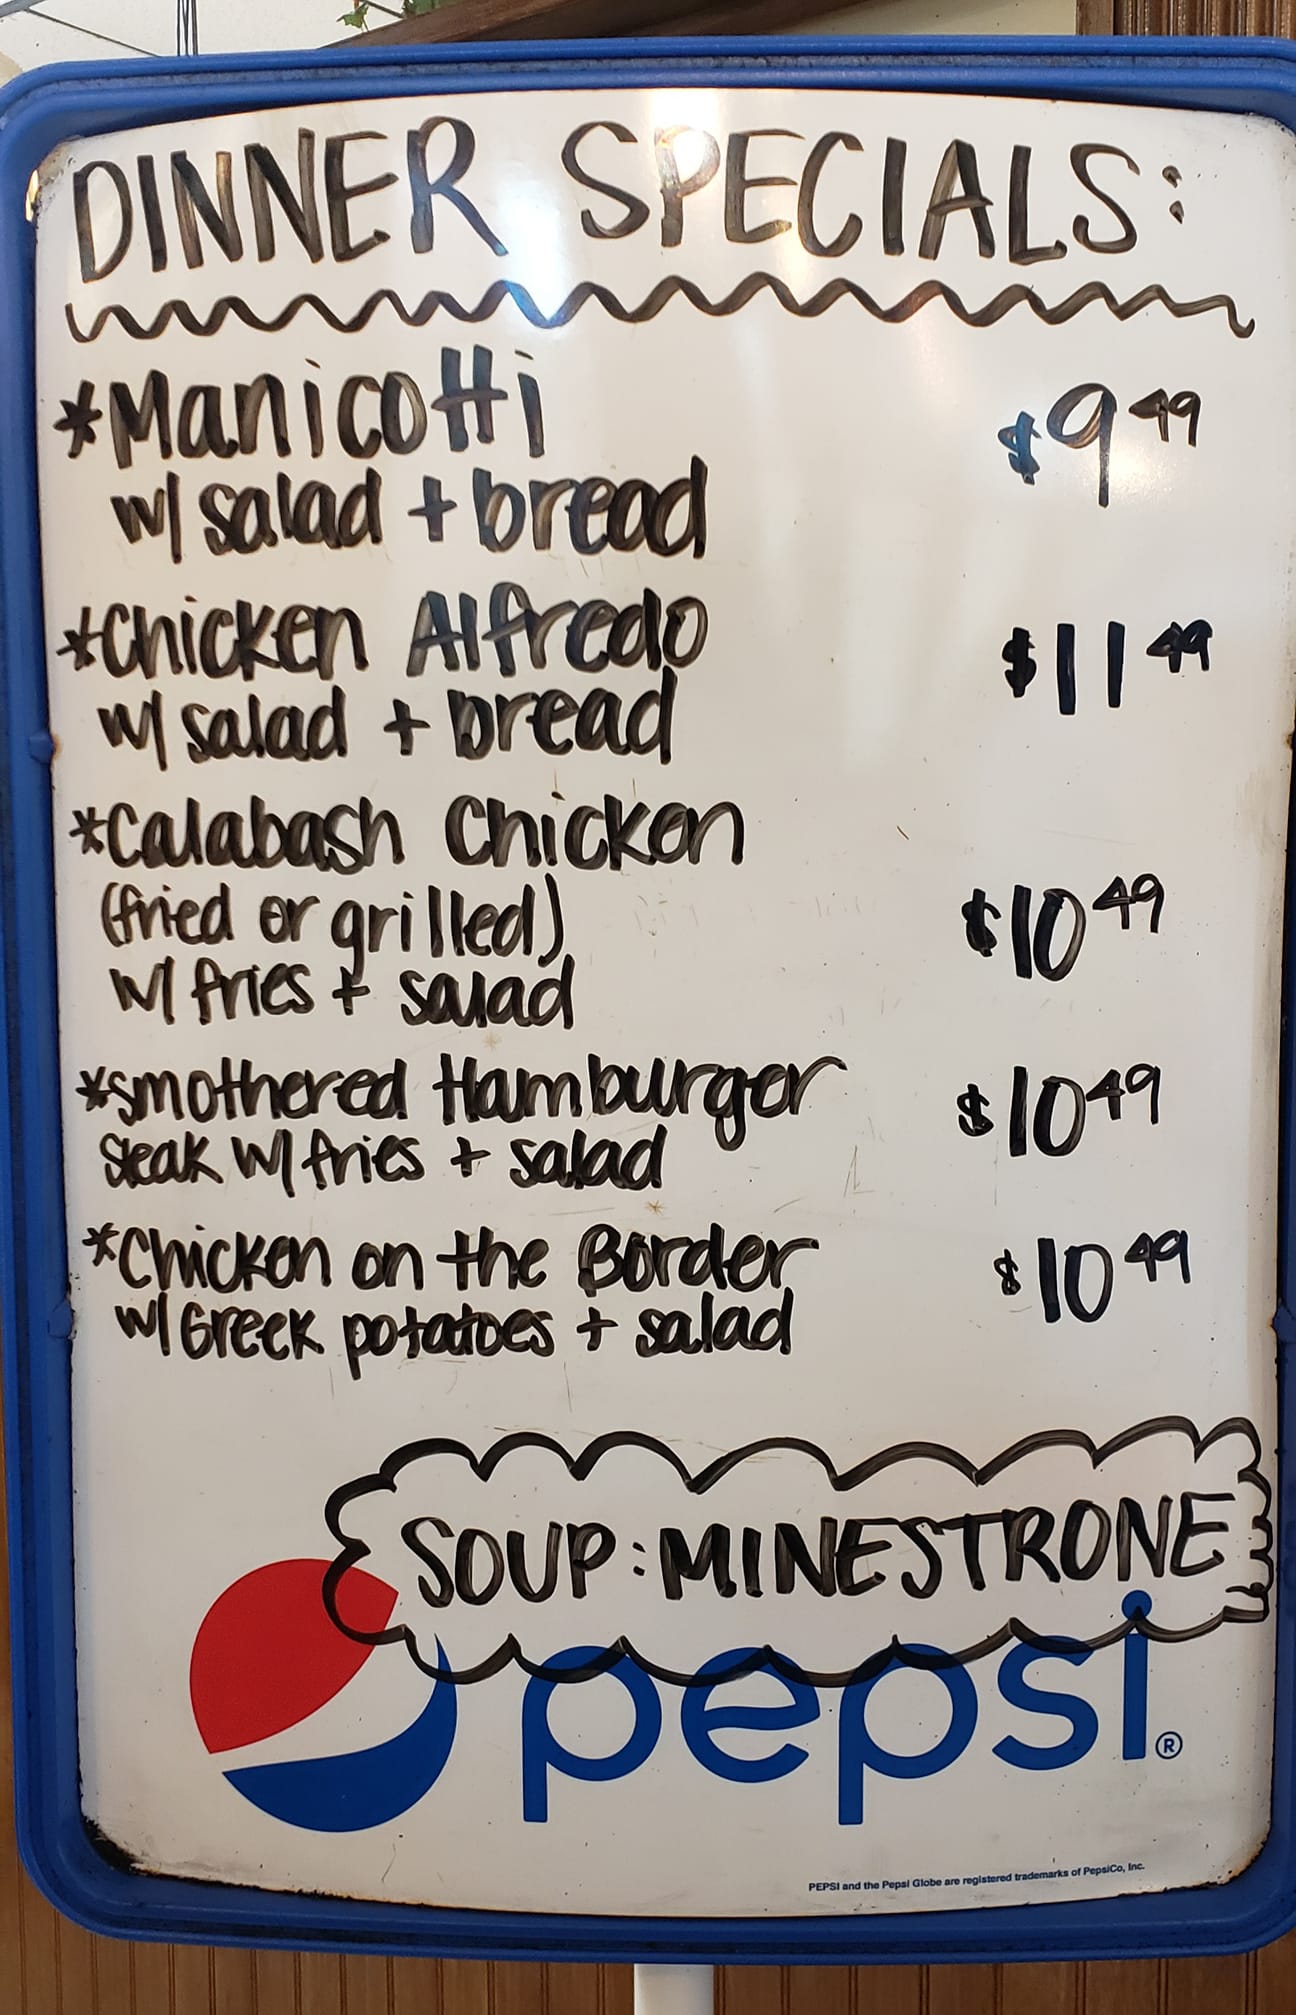 DINNER SPECIALS:
*Manicotti $9.49
w/ salad + bread
*Chicken Alfredo $11.49
w/ salad + bread
*Calabash Chicken
(fried or grilled) $10.49
w/ fries + salad
*smothered Hamburger $10.49
steak w/ fries + salad
*Chicken on the Border $10.49
w/ Greek potatoes + salad
SOUP: MINESTRONE
pepsi®
PEPSI and the Pepsi Globe are registered trademarks of PepsiCo, Inc.